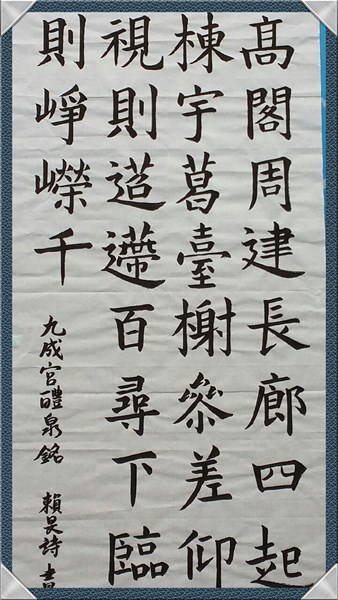 髙閣周建長廊四起
棟宇葛臺榭叅差仰
視則迢遰百尋下臨
則崢嶸千
九成宮醴泉銘 賴昊詩書